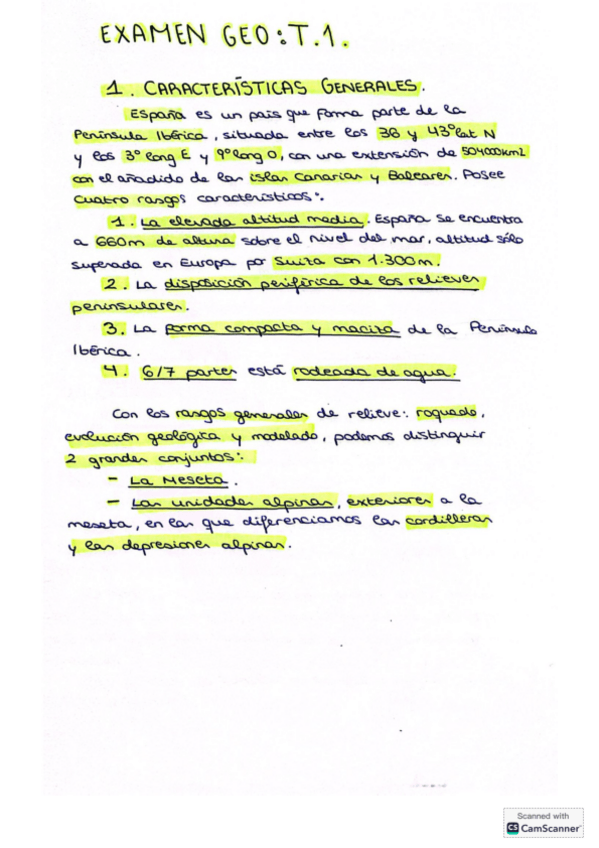 EXAMEN GEO: T.1.
1. CARACTERÍSTICAS GENERALES.
España es un pais que forma parte de la
Península Ibérica, situada entre los 36 y 43º lat N
y los 3º long E y 9º long O, con una extensión de 504000km2
con el añadido de las islas Canarias y Baleares. Posee
cuatro rasgos característicos:
1. La elevada altitud media. España se encuentra
a 660m de altura sobre el nivel del mar, altitud sólo
superada en Europa por Suiza con 1.300m.
2. La disposición periférica de los relieves
peninsulares.
3. La forma compacta y maciza de la Península
Ibérica.
4. 6/7 partes está rodeada de agua.
Con los rasgos generales de relieve: roquedo,
evolución geológica y modelado, podemos distinguir
2 grandes conjuntos:
- La Meseta.
- Las unidades alpinas, exteriores a la
meseta, en las que diferenciamos las cordilleras
y las depresiones alpinas.
Scanned with
CS CamScanner